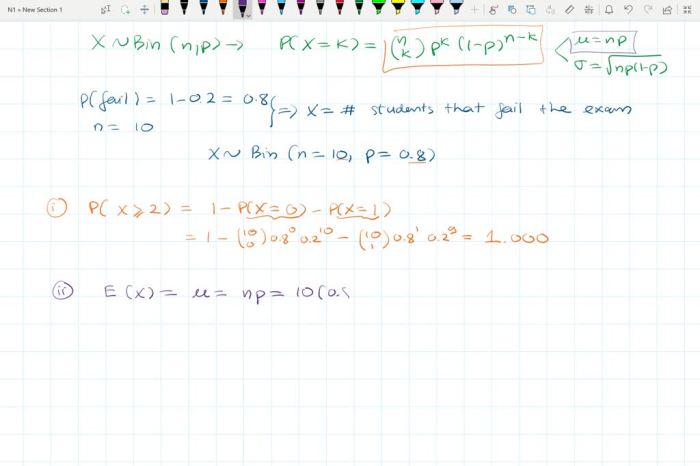 N1 • New Section 1
X ~ Bin (n,p) → P(X=k) = (n k) p^k (1-p)^n-k μ = np
σ = √np(1-p)
P(fail) = 1-0.2 = 0.8
n = 10 } ⇒ X = # students that fail the exam
X ~ Bin (n = 10, p = 0.8)
(i) P(X ⩾ 2) = 1 - P(X=0) - P(X=1)
= 1 - (10 0) 0.8^0 0.2^10 - (10 1) 0.8^1 0.2^9 = 1.000
(ii) E(X) = μ = np = 10(0.